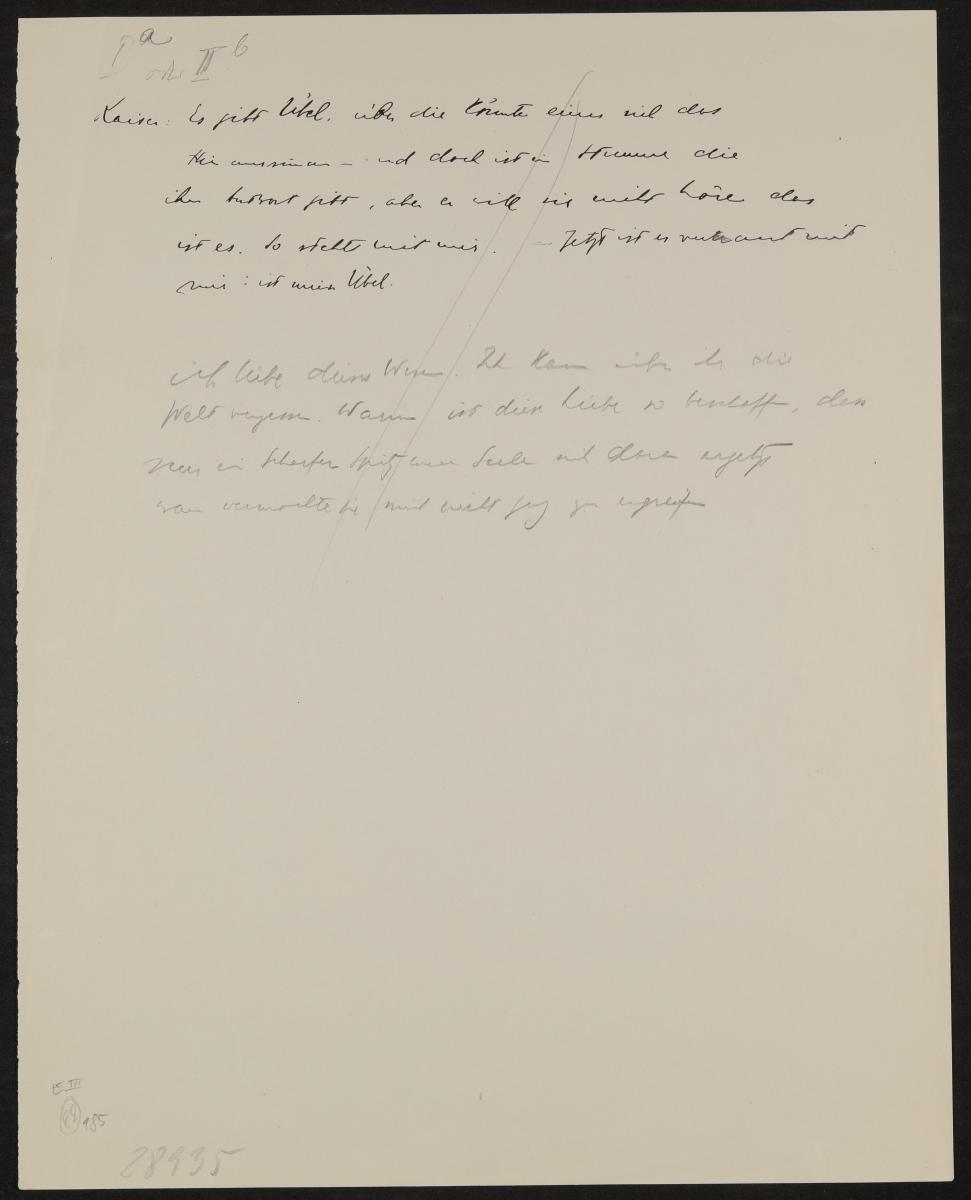 I a
oder II b
Kaiser: Es gibt Übel, über die könnte einer sich das
Hirn aussinnen – und doch ist ein Stimme die
ihm Antwort gibt, aber er will sie nicht hören das
ist es. So steht mit mir. – Jetzt ist es verwandt mit
mir: ist mein Übel.
ich liebe dieses Wesen. Ich kann über ihr die
Welt vergessen. Warum ist diese Liebe so beschaffen, dass
nur ein scharfer Spitz meine Seele sich daran ergetzt
warum vermochte sie mich nicht ganz zu ergreifen
E III
185
28935